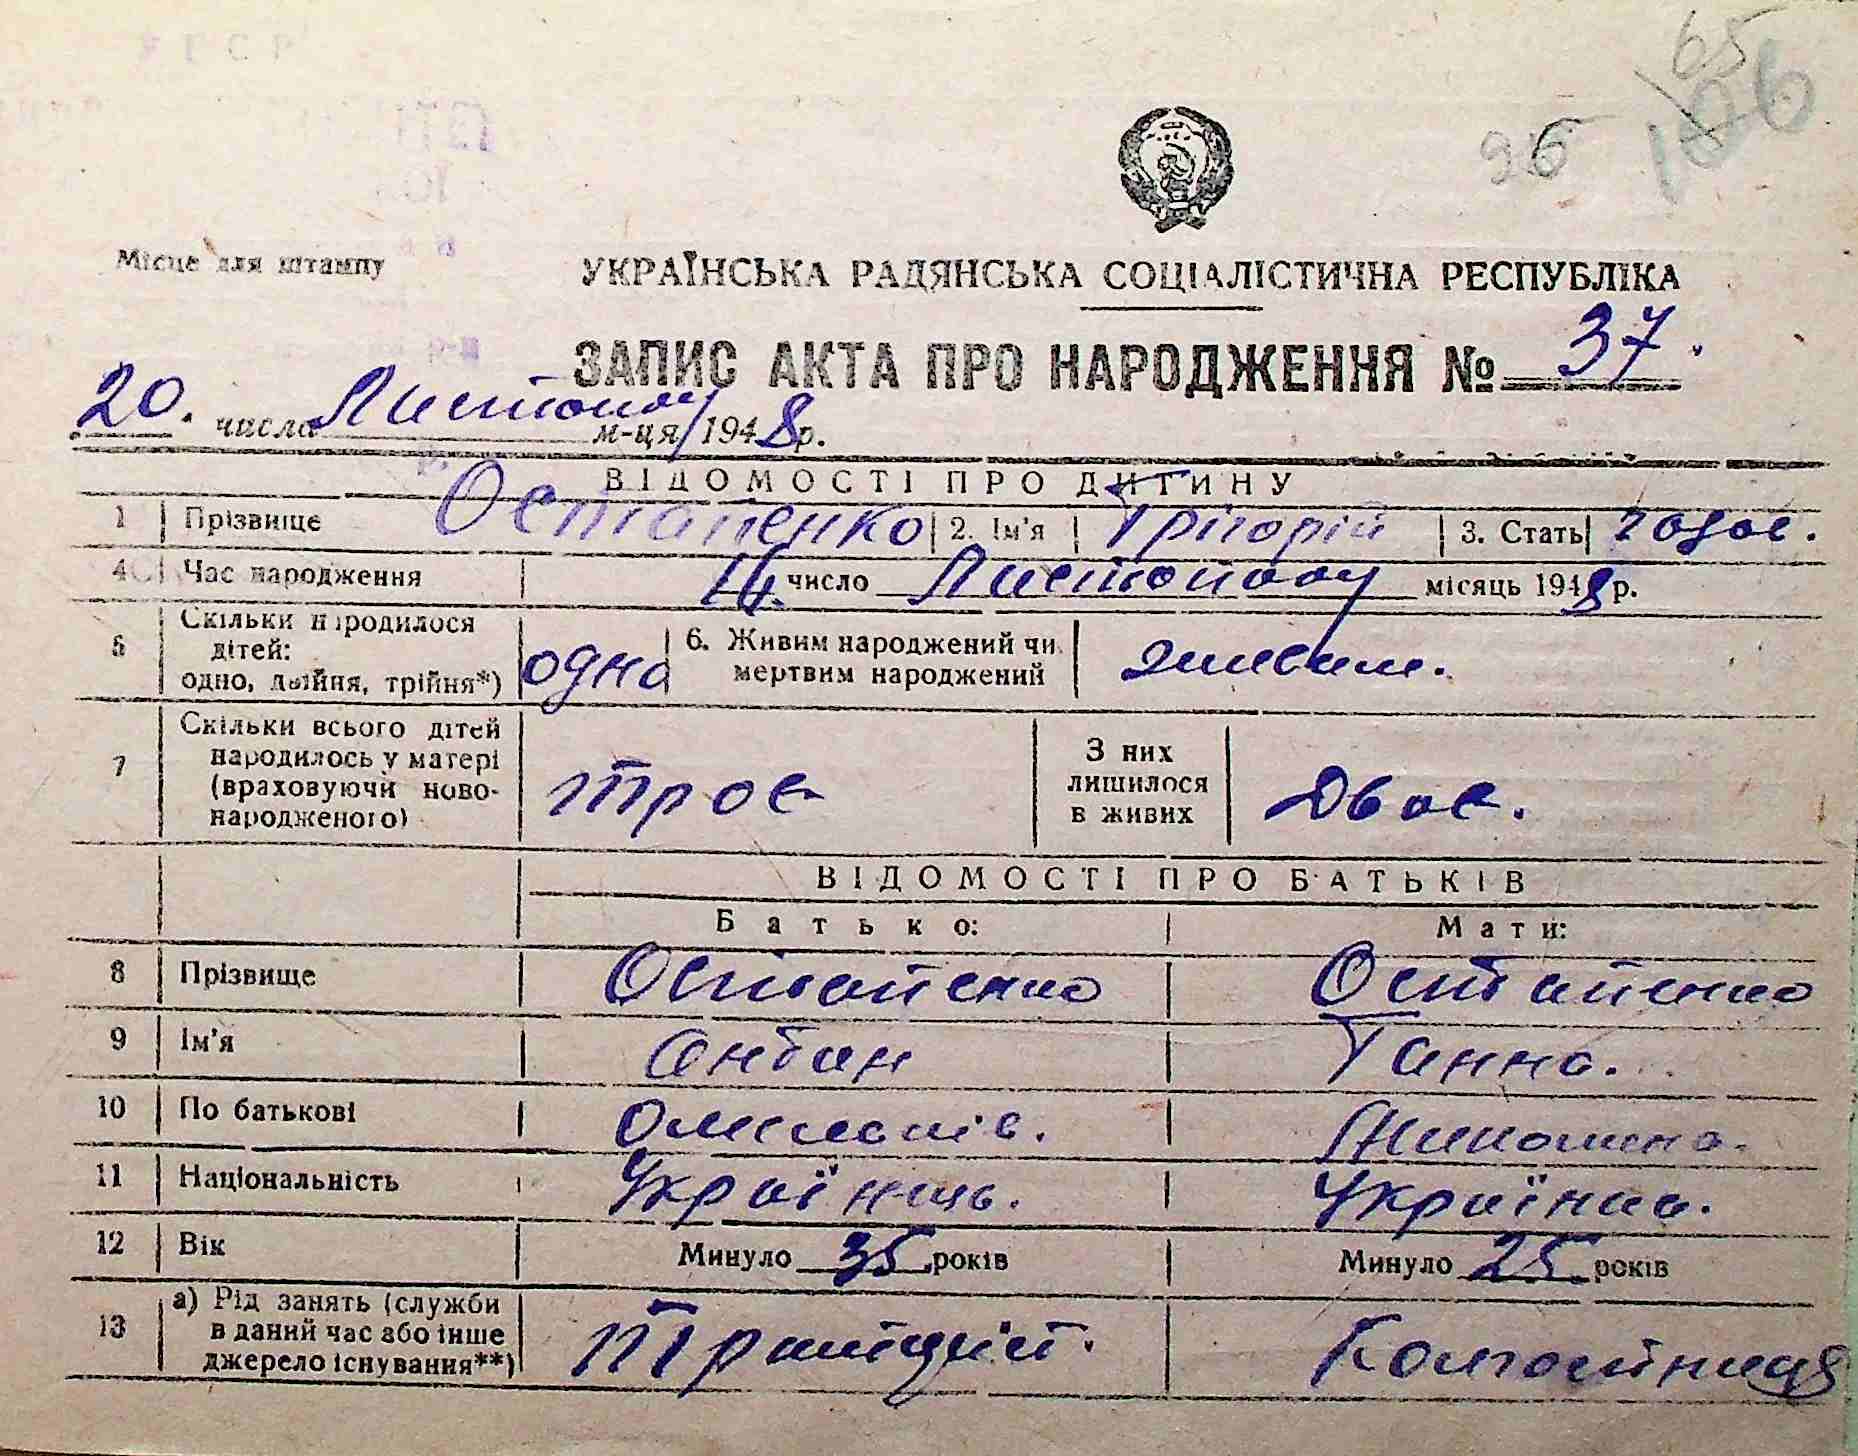 65
96 106
Місце для штампу
УКРАЇНСЬКА РАДЯНСЬКА СОЦІАЛІСТИЧНА РЕСПУБЛІКА
ЗАПИС АКТА ПРО НАРОДЖЕННЯ № 37.
20. числа Листопаду м-ця 1948 р.
ВІДОМОСТІ ПРО ДИТИНУ
1 Прізвище Остапенко 2. Ім'я Грігорій 3. Стать чолов.
4 Час народження 14. число Листопаду місяць 1948 р.
5 Скільки народилося дітей: одно, двійня, трійня*) одна 6. Живим народжений чи мертвим народжений живим.
7 Скільки всього дітей народилось у матері (враховуючи новонародженого) троє З них лишилося в живих Двоє.
ВІДОМОСТІ ПРО БАТЬКІВ
Батько: Мати:
8 Прізвище Остапенко Остапенко
9 Ім'я Антон Ганна.
10 По батькові
11 Національність Українець. Українка.
12 Вік Минуло 35 років Минуло 25 років
13 а) Рід занять (служби в даний час або інше джерело існування**) Тракторіст. Колгостниця